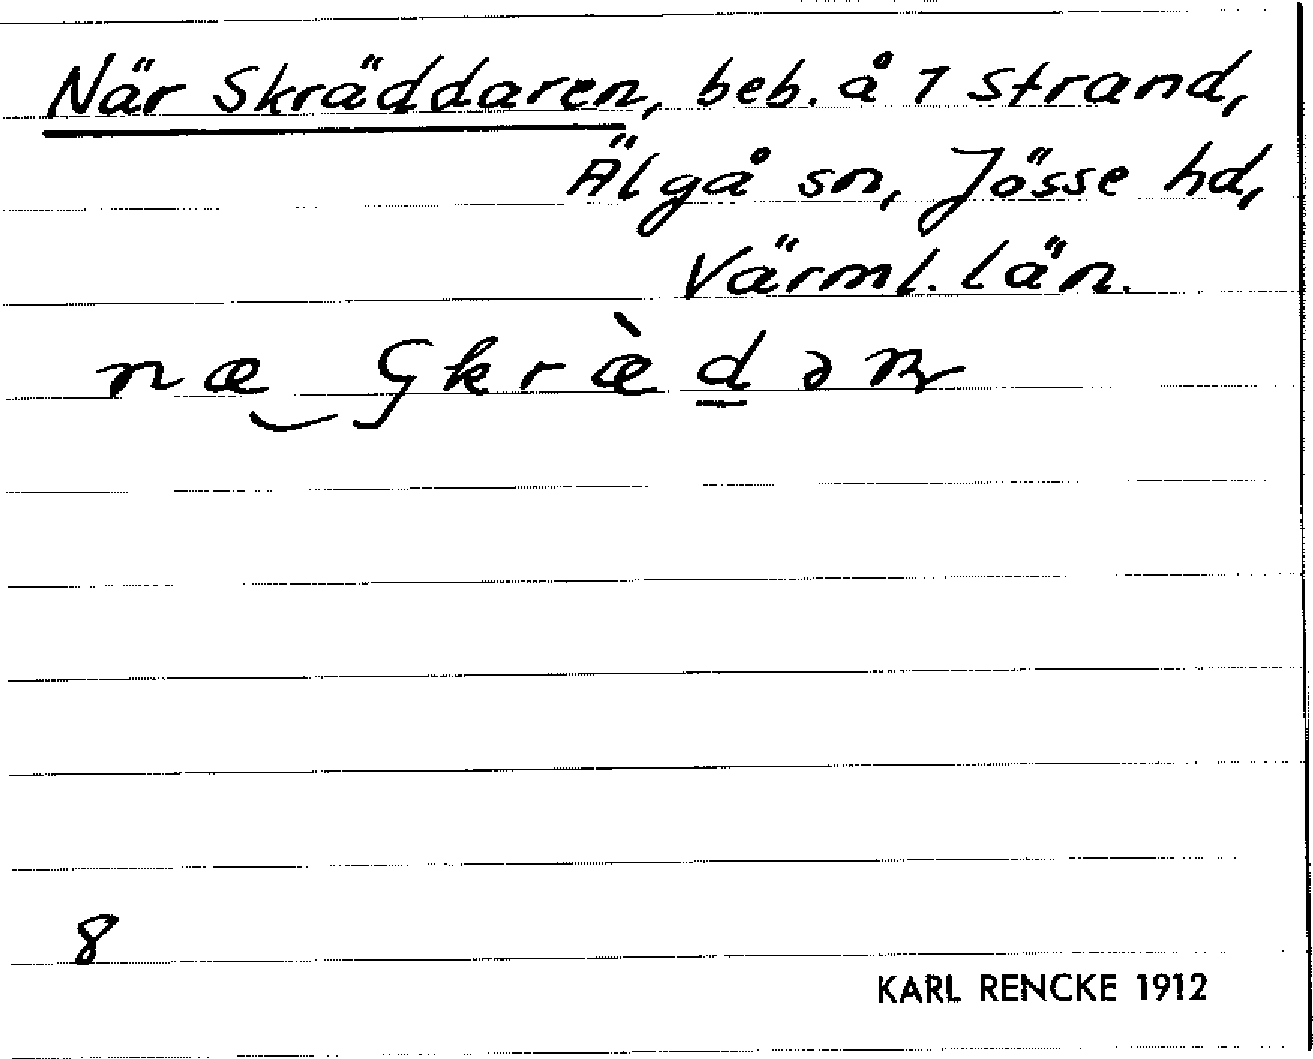 När Skräddaren, beb. å 1 Strand,
Älgå sn, Jösse hd,
Värml. län.
næ‿ʂkræ̀d̲ər
8
KARL RENCKE 1912